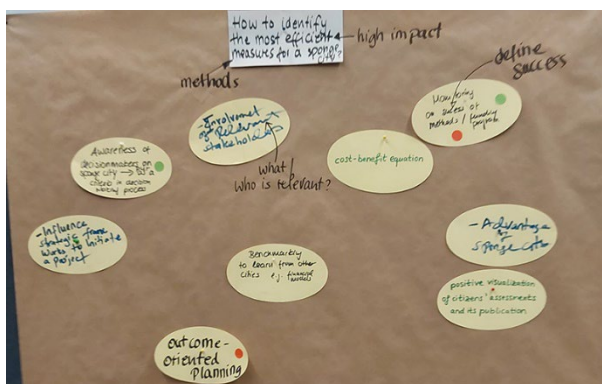 How to identify
the most efficient
measures for a sponge
city?
high impact
methods
define
success
- Involvmet
of Relevant
stakeholders
what /
who is relevant?
Monitoring
on success of
methods / funding
program
cost-benefit equation
Awareness of
decisionmakers on
sponge city → as a
criteria in decision
making process
- Influence
strategic frame
works to initiate
a project
Benchmarking
to learn from other
cities e.g. financial
models
- Advantage
of
sponge
positive visualization
of citizens' assessments
and its publication
outcome-
oriented
planning